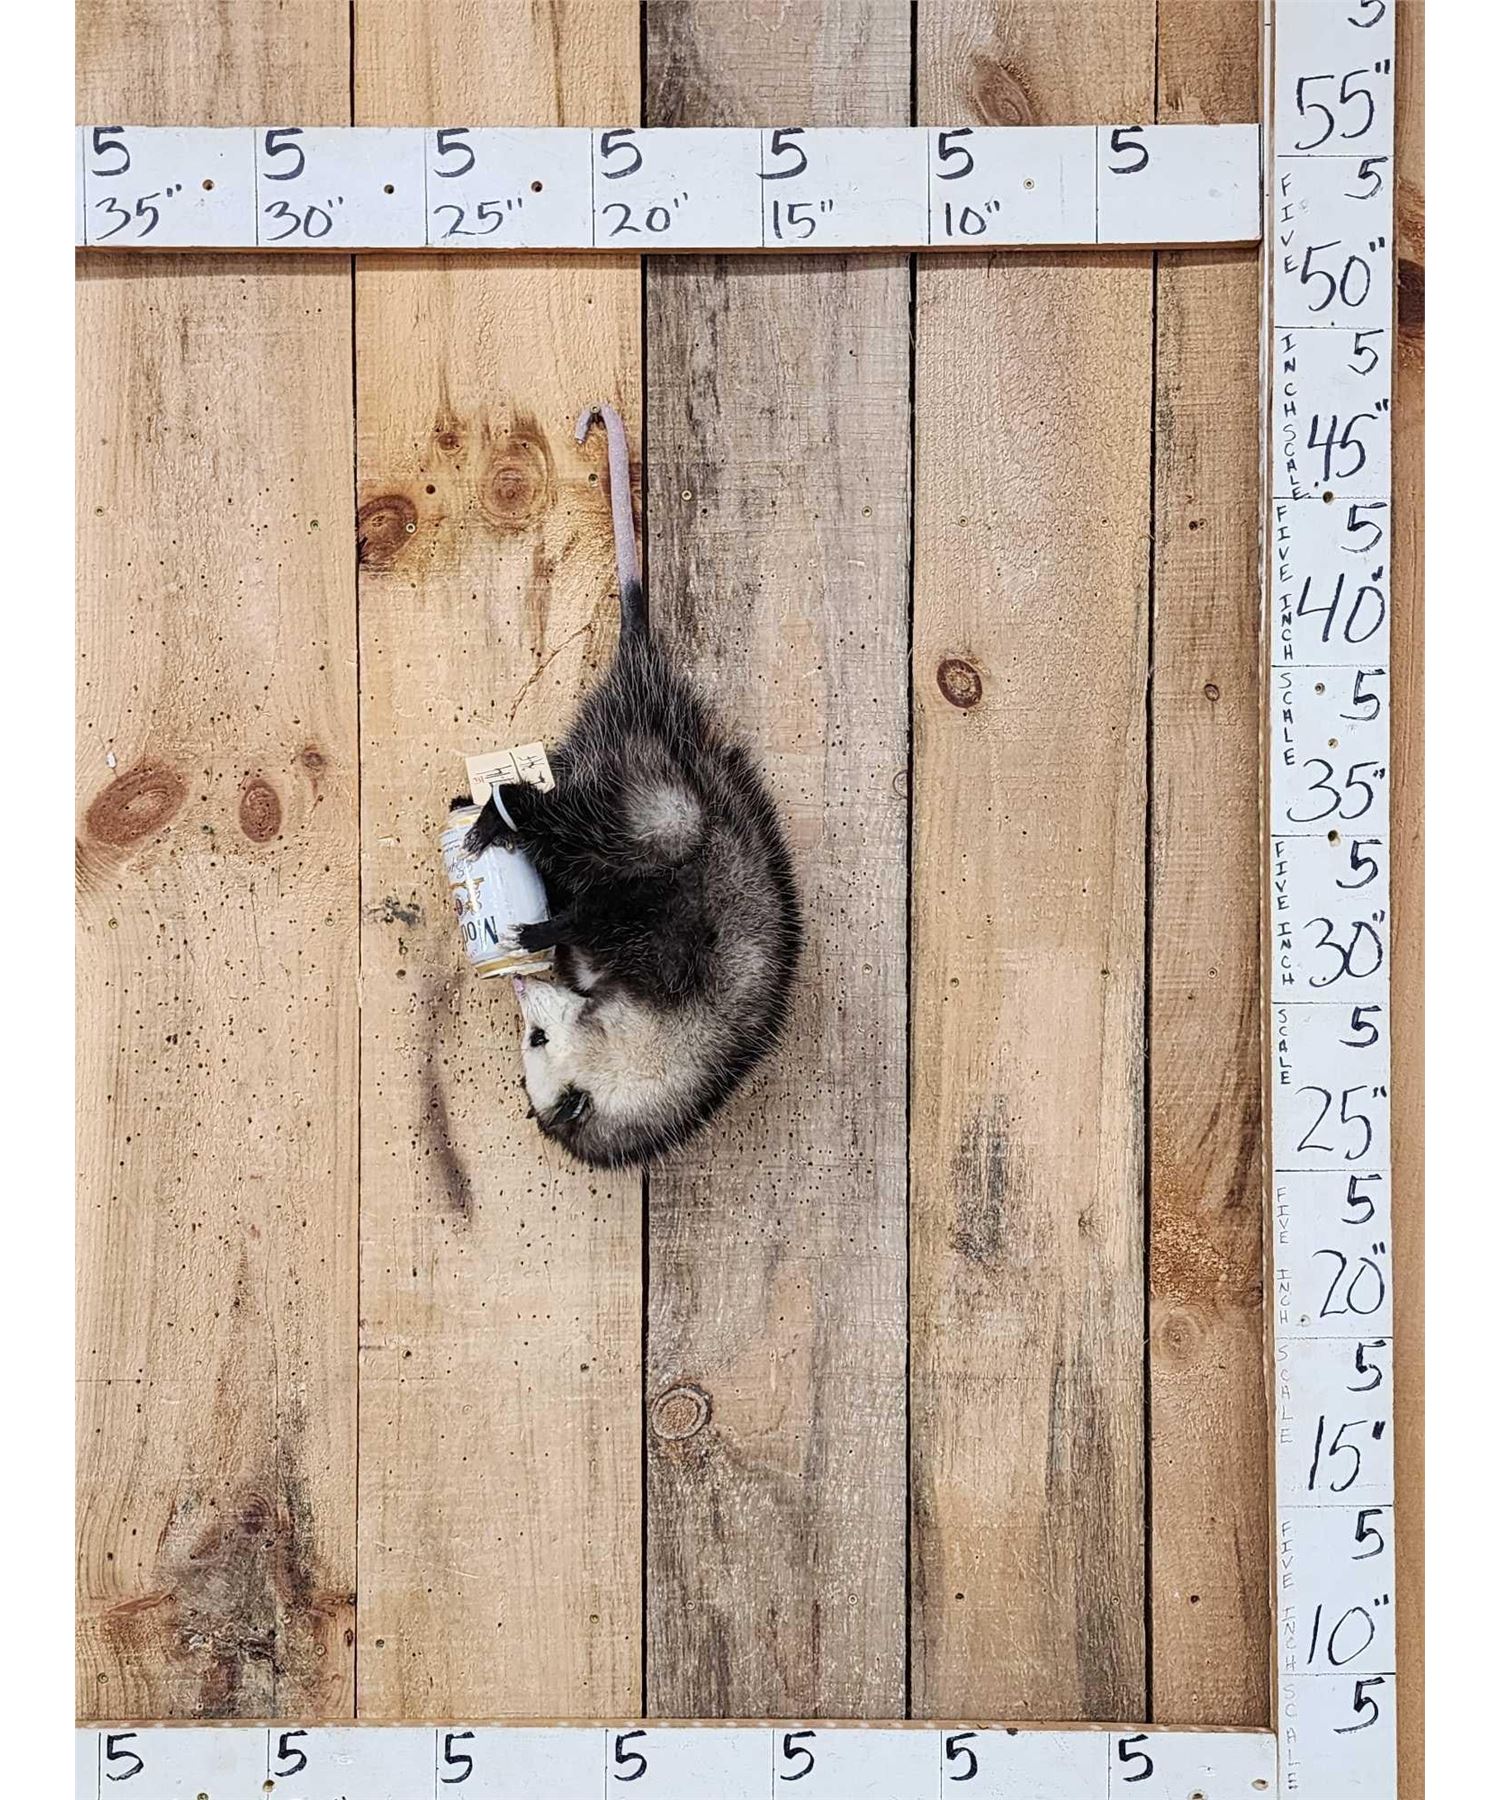 5
55"
5 5 5 5 5 5 5
35" 30" 25" 20" 15" 10"
5
FIVE
50"
INCH
5
SCALE
45"
5
FIVE
INCH
40"
SCALE
5
35"
5
FIVE
INCH
30"
SCALE
5
25"
5
FIVE
INCH
20"
SCALE
5
15"
5
FIVE
INCH
10"
SCALE
5
5 5 5 5 5 5 5